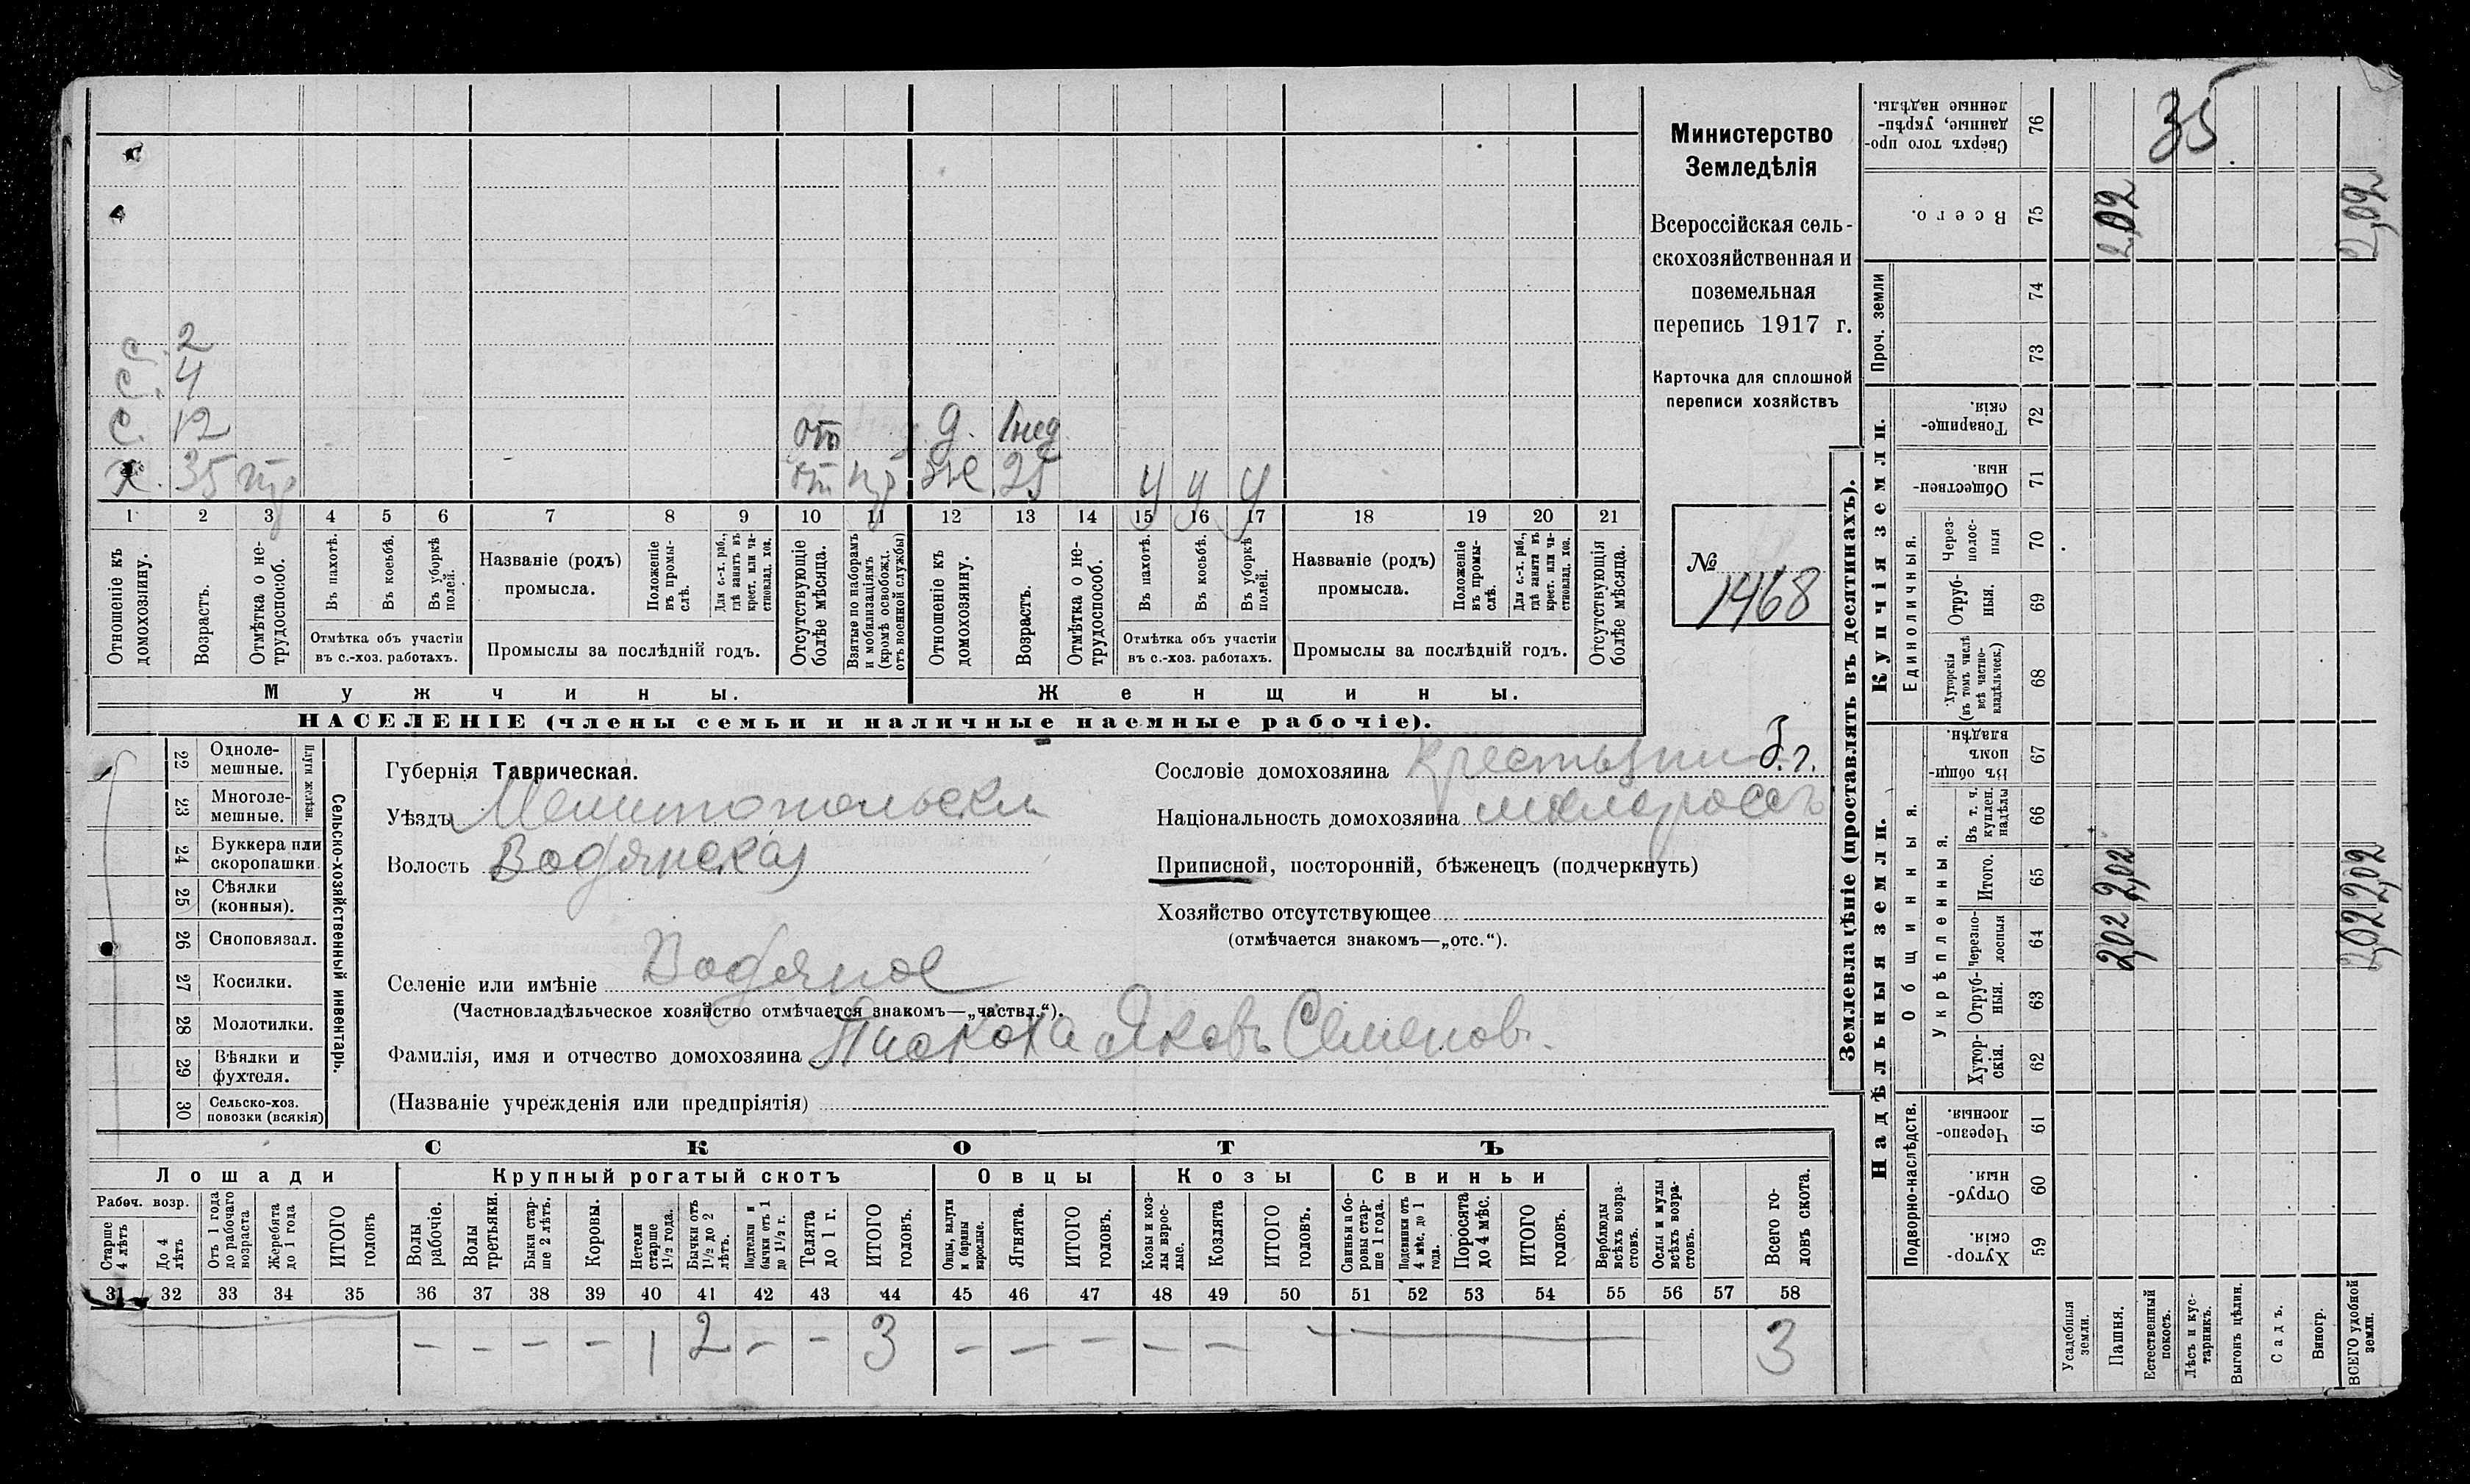 с
с
с. 2
с. 4
с. 12 от д. 1 нед
х. 35 тр от тр же 25 у у у
1 2 3 4 5 6 7 8 9 10 11 12 13 14 15 16 17 18 19 20 21
Отношеніе къ домохозяину.
Возрастъ.
Отмѣтка о нетрудоспособ.
Въ пахотѣ.
Въ косьбѣ.
Въ уборкѣ полей.
Отмѣтка объ участіи
въ с.-хоз. работахъ.
Названіе (родъ)
промысла.
Положеніе въ промыслѣ.
Для с.-х. раб., гдѣ занятъ въ крест. или частновлад. хоз.
Промыслы за послѣдній годъ.
Отсутствующіе болѣе мѣсяца.
Взятые по наборамъ и мобилизаціямъ (кромѣ освобожд. отъ военной службы)
Отношеніе къ домохозяину.
Возрастъ.
Отмѣтка о нетрудоспособ.
Въ пахотѣ.
Въ косьбѣ.
Въ уборкѣ полей.
Отмѣтка объ участіи
въ с.-хоз. работахъ.
Названіе (родъ)
промысла.
Положеніе въ промыслѣ.
Для с.-х. раб., гдѣ занята въ крест. или частновлад. хоз.
Промыслы за послѣдній годъ.
Отсутствующія болѣе мѣсяца.
Мужчины. Женщины.
НАСЕЛЕНІЕ (члены семьи и наличные наемные рабочіе).
Министерство
Земледѣлія
Всероссійская сель-
скохозяйственная и
поземельная
перепись 1917 г.
Карточка для сплошной
переписи хозяйствъ
№
1468
22 Одноле-
мешные.
23 Многоле-
мешные.
Плуги желѣзн.
24 Буккера или
скоропашки.
25 Сѣялки
(конныя).
26 Сноповязал.
27 Косилки.
28 Молотилки.
29 Вѣялки и
фухтеля.
30 Сельско-хоз.
повозки (всякія)
Сельско-хозяйственный инвентарь.
Губернія Таврическая.
Уѣздъ Мелитопольски
Волость Водянская
Селеніе или имѣніе Водяное
(Частновладѣльческое хозяйство отмѣчается знакомъ—„частвл.“).
Фамилія, имя и отчество домохозяина Пискоха Яковъ Семенов.
(Названіе учрежденія или предпріятія)
Сословіе домохозяина крестьянин б.г.
Національность домохозяина малоросъ
Приписной, посторонній, бѣженецъ (подчеркнуть)
Хозяйство отсутствующее
(отмѣчается знакомъ—„отс.“).
СКОТЪ
Лошади Крупный рогатый скотъ Овцы Козы Свиньи
Рабоч. возр.
Старше 4 лѣтъ
До 4 лѣтъ
Отъ 1 года до рабочаго возраста
Жеребята до 1 года
ИТОГО головъ
Волы рабочіе.
Волы третьяки.
Быки старше 2 лѣтъ.
Коровы.
Нетели старше 1½ года.
Бычки отъ 1½ до 2 лѣтъ.
Подтелки и бычки отъ 1 до 1½ г.
Телята до 1 г.
ИТОГО головъ.
Овцы, валухи и бараны взрослые.
Ягнята.
ИТОГО головъ.
Козы и козлы взрослые.
Козлята
ИТОГО головъ.
Свиньи и боровы старше 1 года.
Подсвинки отъ 4 мѣс. до 1 года.
Поросята до 4 мѣс.
ИТОГО головъ.
Верблюды всѣхъ возрастовъ.
Ослы и мулы всѣхъ возрастовъ.
Всего головъ скота.
31 32 33 34 35 36 37 38 39 40 41 42 43 44 45 46 47 48 49 50 51 52 53 54 55 56 57 58
– – – – 1 2 – – 3 – – – – – 3
Землевладѣніе (проставлять въ десятинахъ).
Надѣльныя земли. Купчія земли.
Подворно-наслѣдств.
Общинныя.
Укрѣпленныя.
Единоличныя.
Проч. земли
Хуторскія. 59
Отрубныя. 60
Черезполосныя. 61
Хуторскія. 62
Отрубныя. 63
Черезполосныя 64
Итого. 65
Въ т. ч. куплен. надѣлы 66
Въ общинномъ владѣн. 67
Хуторскія (въ томъ числѣ всѣ частновладѣльческ.) 68
Отрубныя. 69
Черезполосныя 70
Общественныя. 71
Товарищескія. 72
73
74
Всего. 75
Сверхъ того проданные, укрѣпленные надѣлы. 76
Усадебныя земли.
Пашня. 2,02 2,02 2,02
Естественный покосъ.
Лѣсъ и кустарникъ.
Выгонъ цѣлин.
Садъ.
Виногр.
ВСЕГО удобной земли. 2,02 2,02 2,02
35